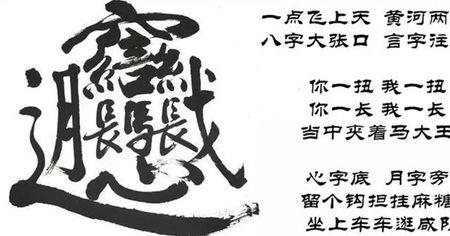 𰻞
一点飞上天 黄河两
八字大张口 言字往
你一扭 我一扭
你一长 我一长
当中夹着马大王
心字底 月字旁
留个钩担挂麻糖
坐上车车逛咸